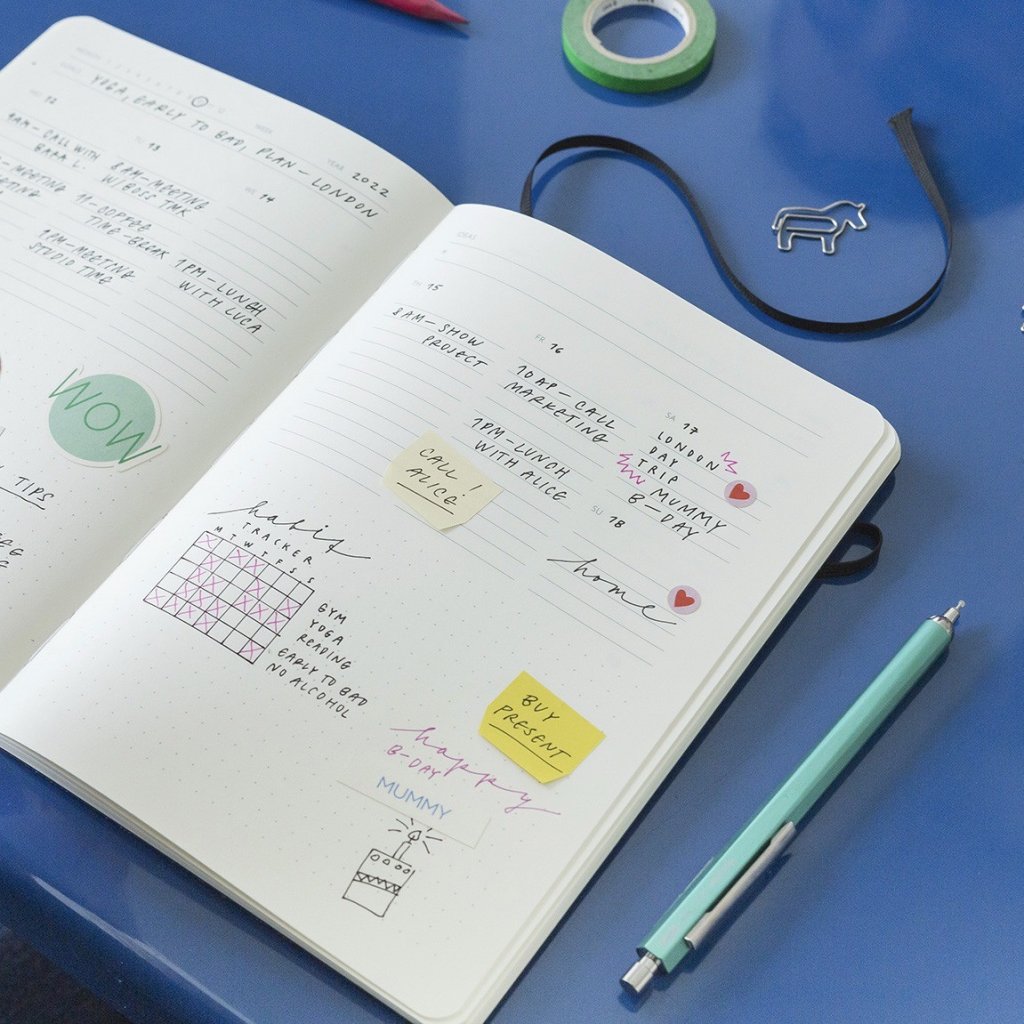 WEEK
YEAR 2022
YOGA, EARLY TO BAD, PLAN - LONDON
12
9AM - CALL WITH
SARA L.
MEETING
13
8AM - MEETING
W/BOSS TMK
11 - COFFEE
TIME - BREAK
1PM - MEETING
STUDIO TIME
14
1PM - LUNCH
WITH LUCA
WOW
TIPS
IDEAS
TH 15
8AM - SHOW
PROJECT
FR 16
10AP - CALL
MARKETING
1PM - LUNCH
WITH ALICE
SA 17
LONDON
DAY
TRIP
MUMMY
B - DAY
SU 18
home
CALL!
ALICE!
habit
TRACKER
M T W T F S S
GYM
YOGA
READING
EARLY TO BAD
NO ALCOHOL
BUY
PRESENT
happy
B-DAY
MUMMY